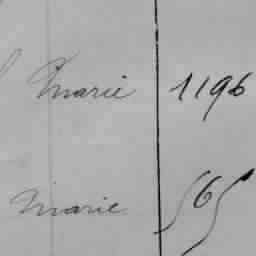 Marie 1196
Marie 565